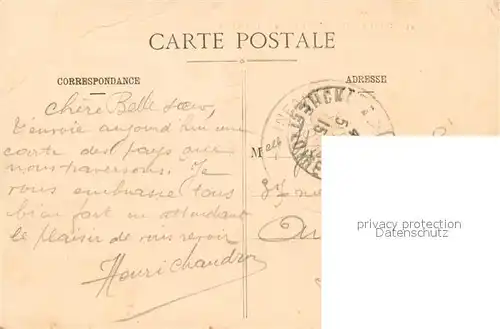 CARTE POSTALE
CORRESPONDANCE
ADRESSE
Chère Belle sœur,
t'envoie aujourd'hui une
carte des pays que
nous traversons. Je
vous embrasse tous
bien fort en attendant
le plaisir de vous revoir
Henri Chaudron
M elle
privacy protection
Datenschutz